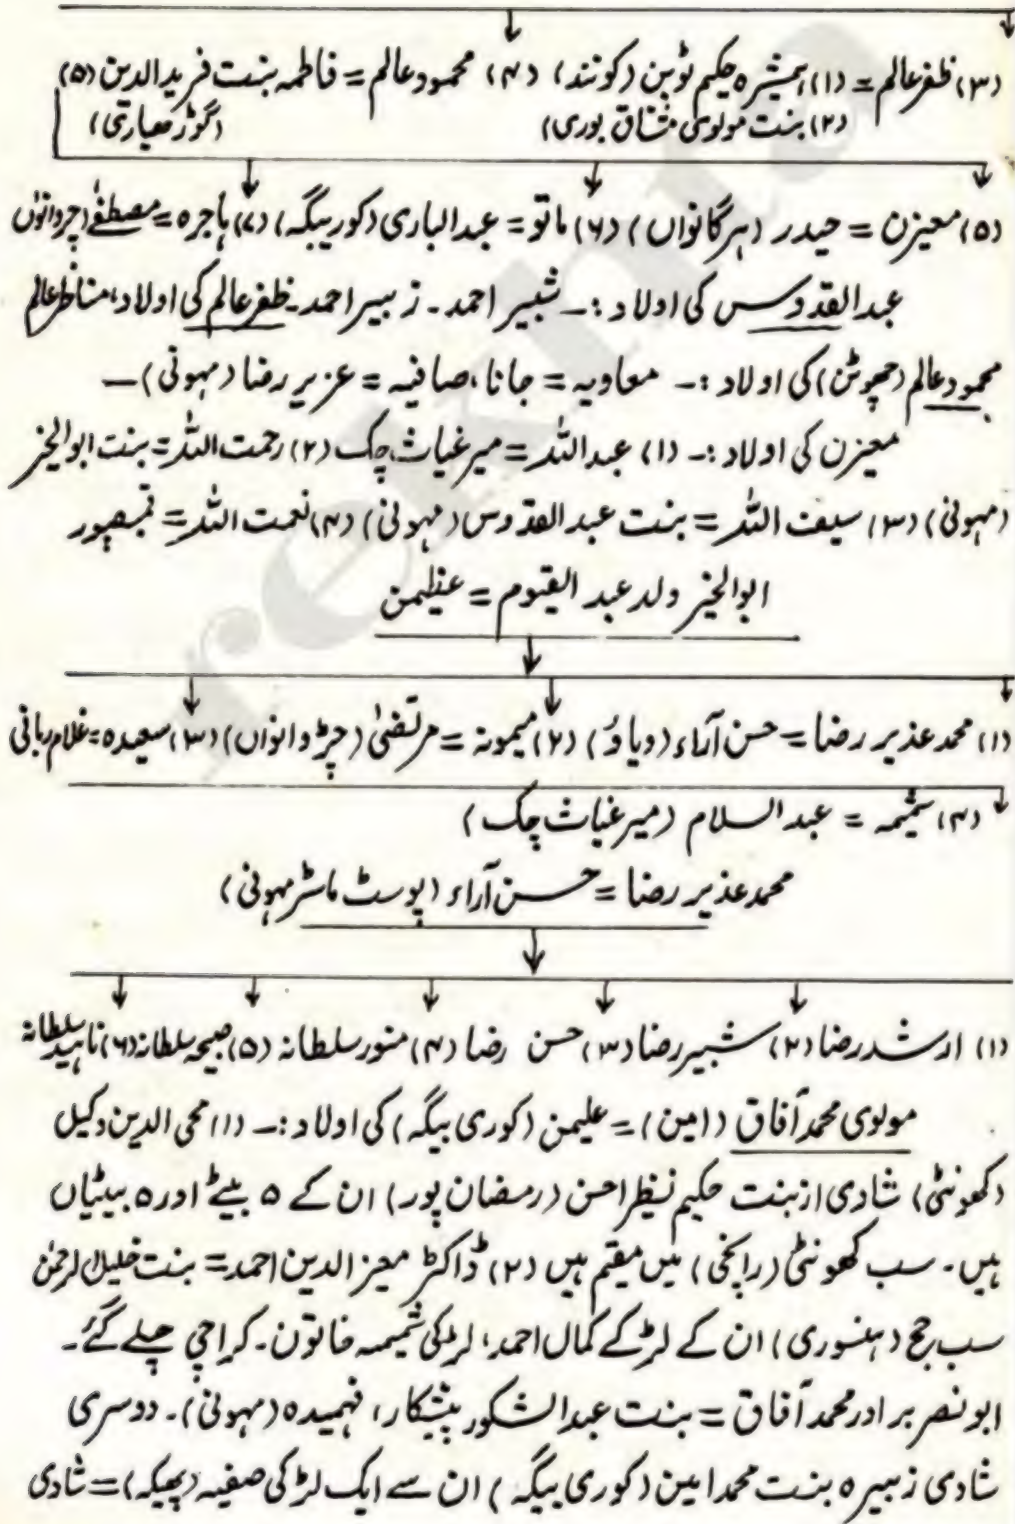 (۳) ظفر عالم = (۱) ہمشیرہ حکیم ٹوبن (کونند) (۴) محمود عالم = فاطمہ بنت فرید الدین (۵)
(۲) بنت مولوی مشتاق بوری) (گوڑ معیارتی)
(۵) معیزن = حیدر (ہرگانواں) (۶) ماتو = عبد الباری (کوربیگہ) (۷) ہاجرہ = مصطفےٰ (چروانوں
عبد القدوس کی اولاد :۔ شبیر احمد۔ زبیر احمد۔ ظفر عالم کی اولاد، مناظر عالم
محمود عالم (چھوٹن) کی اولاد :۔ معاویہ = جانا، صافیہ = عزیر رضا (مہونی) ۔
معیزن کی اولاد :۔ (۱) عبد اللہ = میر غیاث چک (۲) رحمت اللہ = بنت ابو الخیر
(مہونی) (۳) سیف اللہ = بنت عبد القدوس (مہونی) (۴) نعمت اللہ =
ابو الخیر ولد عبد القیوم = عظیمن
(۱) محمد عذیر رضا = حسن آراء (دیاواں) (۲) میمونہ = مرتضیٰ (چڑوانواں) (۳) سعیدہ = غلام ربانی
(۴) شمیمہ = عبد السلام (میر غیاث چک)
محمد عذیر رضا = حسن آراء (پوسٹ ماسٹر مہونی)
(۱) ارشد رضا (۲) شبیر رضا (۳) حسن رضا (۴) منور سلطانہ (۵) صبیحہ سلطانہ (۶) ناہید سلطانہ
مولوی محمد آفاق (امین) = علیمن (کوری بیگہ) کی اولاد :۔ (۱) محی الدین وکیل
(کھونٹی) شادی از بنت حکیم نظر احسن (رمضان پور) ان کے ۵ بیٹے اور ۵ بیٹیاں
ہیں۔ سب کھونٹی (رانچی) میں مقیم ہیں (۲) ڈاکٹر معیز الدین احمد = بنت خلیل الرحمٰن
سب جج (ہنسوری) ان کے لڑکے کمال احمد، لڑکی شمیمہ خاتون۔ کراچی چلے گئے۔
ابو نصر برادر محمد آفاق = بنت عبد الشکور پیشکار، فہمیدہ (مہونی)۔ دوسری
شادی زبیرہ بنت محمد امین (کوری بیگہ) ان سے ایک لڑکی صفیہ (پھیکہ) = شادی